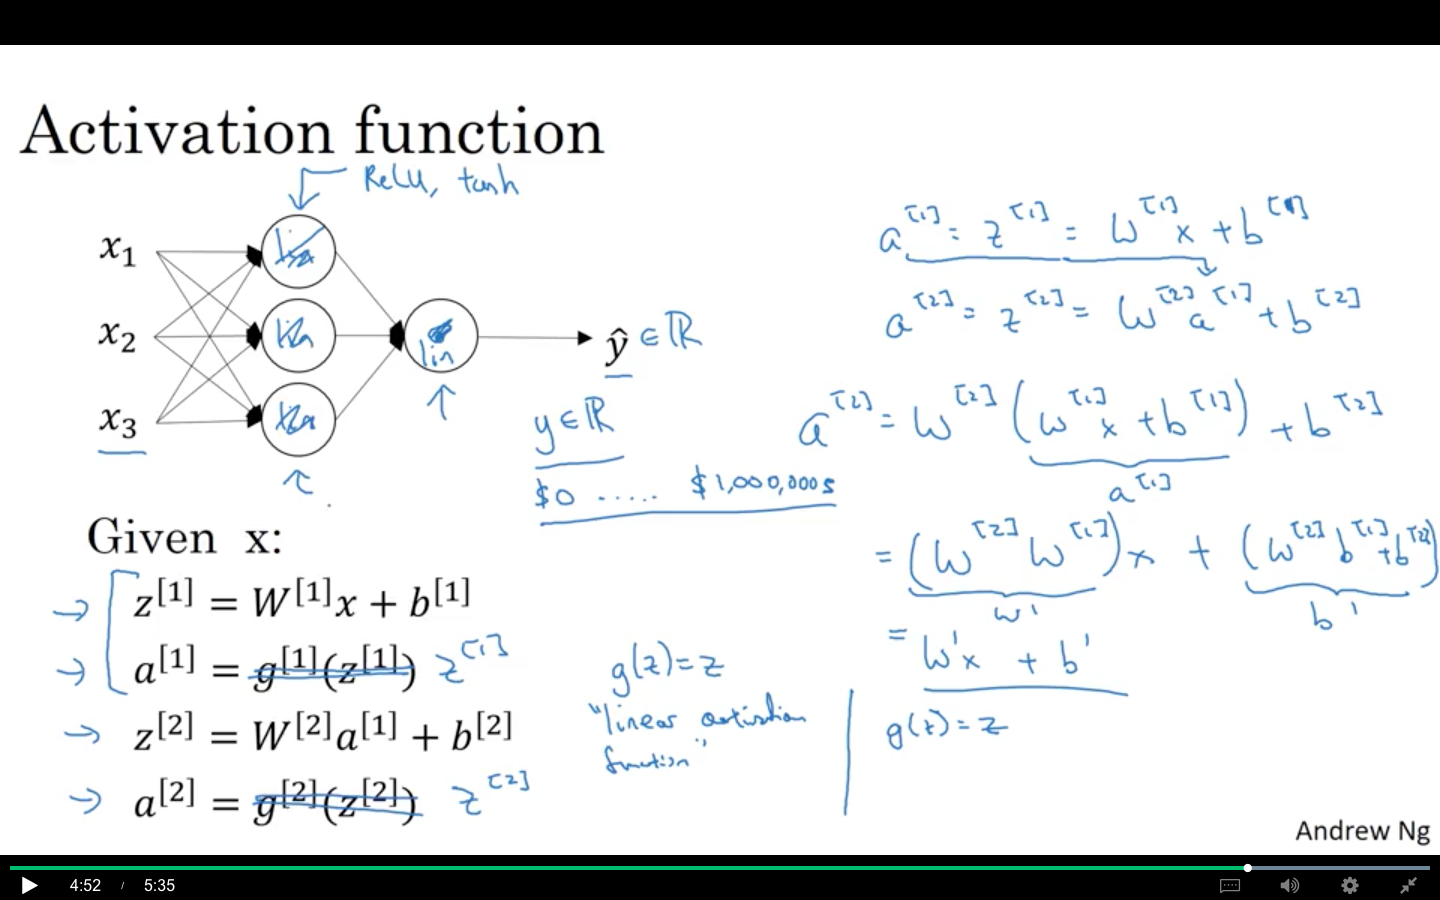 Activation function
ReLU, tanh
x₁
x₂
x₃
lin
ŷ ∈ ℝ
y ∈ ℝ
$0 ..... $1,000,000s
Given x:
z[1] = W[1]x + b[1]
a[1] = g[1](z[1]) z[1]
z[2] = W[2]a[1] + b[2]
a[2] = g[2](z[2]) z[2]
g(z) = z
"linear activation
function"
a[1] = z[1] = W[1]x + b[1]
a[2] = z[2] = W[2]a[1] + b[2]
a[2] = W[2](W[1]x + b[1]) + b[2]
a[1]
= (W[2]W[1])x + (W[2]b[1] + b[2])
W' b'
= W'x + b'
g(z) = z
Andrew Ng
4:52 / 5:35